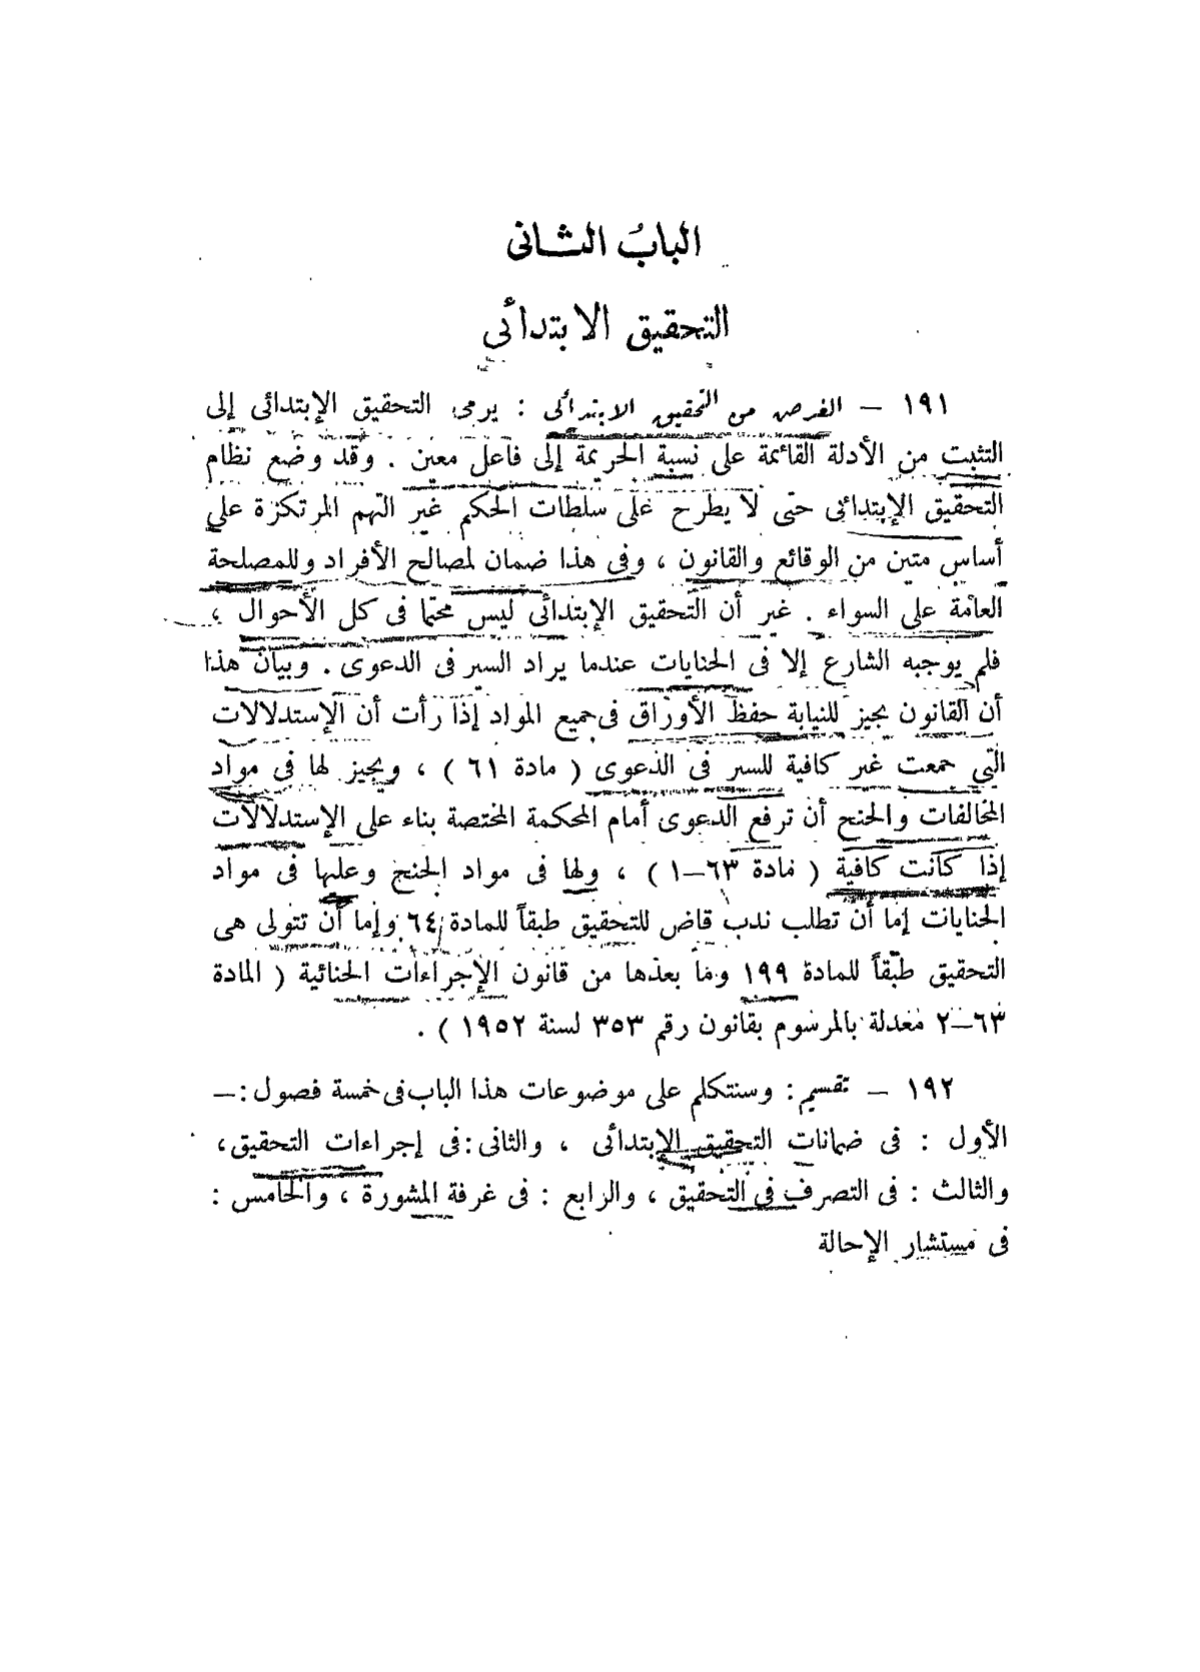 الباب الثانى
التحقيق الابتدائى
١٩١ — الغرض من التحقيق الابتدائى : يرمى التحقيق الإبتدائى إلى
التثبت من الأدلة القائمة على نسبة الجريمة إلى فاعل معين . وقد وضع نظام
التحقيق الإبتدائى حتى لا يطرح على سلطات الحكم غير التهم المرتكزة على
أساس متين من الوقائع والقانون ، وفى هذا ضمان لمصالح الأفراد وللمصلحة
العامة على السواء . غير أن التحقيق الإبتدائى ليس محتما فى كل الأحوال ،
فلم يوجبه الشارع إلا فى الجنايات عندما يراد السير فى الدعوى . وبيان هذا
أن القانون يجيز للنيابة حفظ الأوراق فى جميع المواد إذا رأت أن الإستدلالات
التى جمعت غير كافية للسير فى الدعوى ( مادة ٦١ ) ، ويجيز لها فى مواد
المخالفات والجنح أن ترفع الدعوى أمام المحكمة المختصة بناء على الإستدلالات
إذا كانت كافية ( مادة ٦٣—١ ) ، ولها فى مواد الجنح وعليها فى مواد
الجنايات إما أن تطلب ندب قاض للتحقيق طبقاً للمادة ٦٤ وإما أن تتولى هى
التحقيق طبقاً للمادة ١٩٩ وما بعدها من قانون الإجراءات الجنائية ( المادة
٦٣—٢ معدلة بالمرسوم بقانون رقم ٣٥٣ لسنة ١٩٥٢ ) .
١٩٢ — تقسيم : وسنتكلم على موضوعات هذا الباب فى خمسة فصول :—
الأول : فى ضمانات التحقيق الإبتدائى ، والثانى : فى إجراءات التحقيق ،
والثالث : فى التصرف فى التحقيق ، والرابع : فى غرفة المشورة ، والخامس :
فى مستشار الإحالة